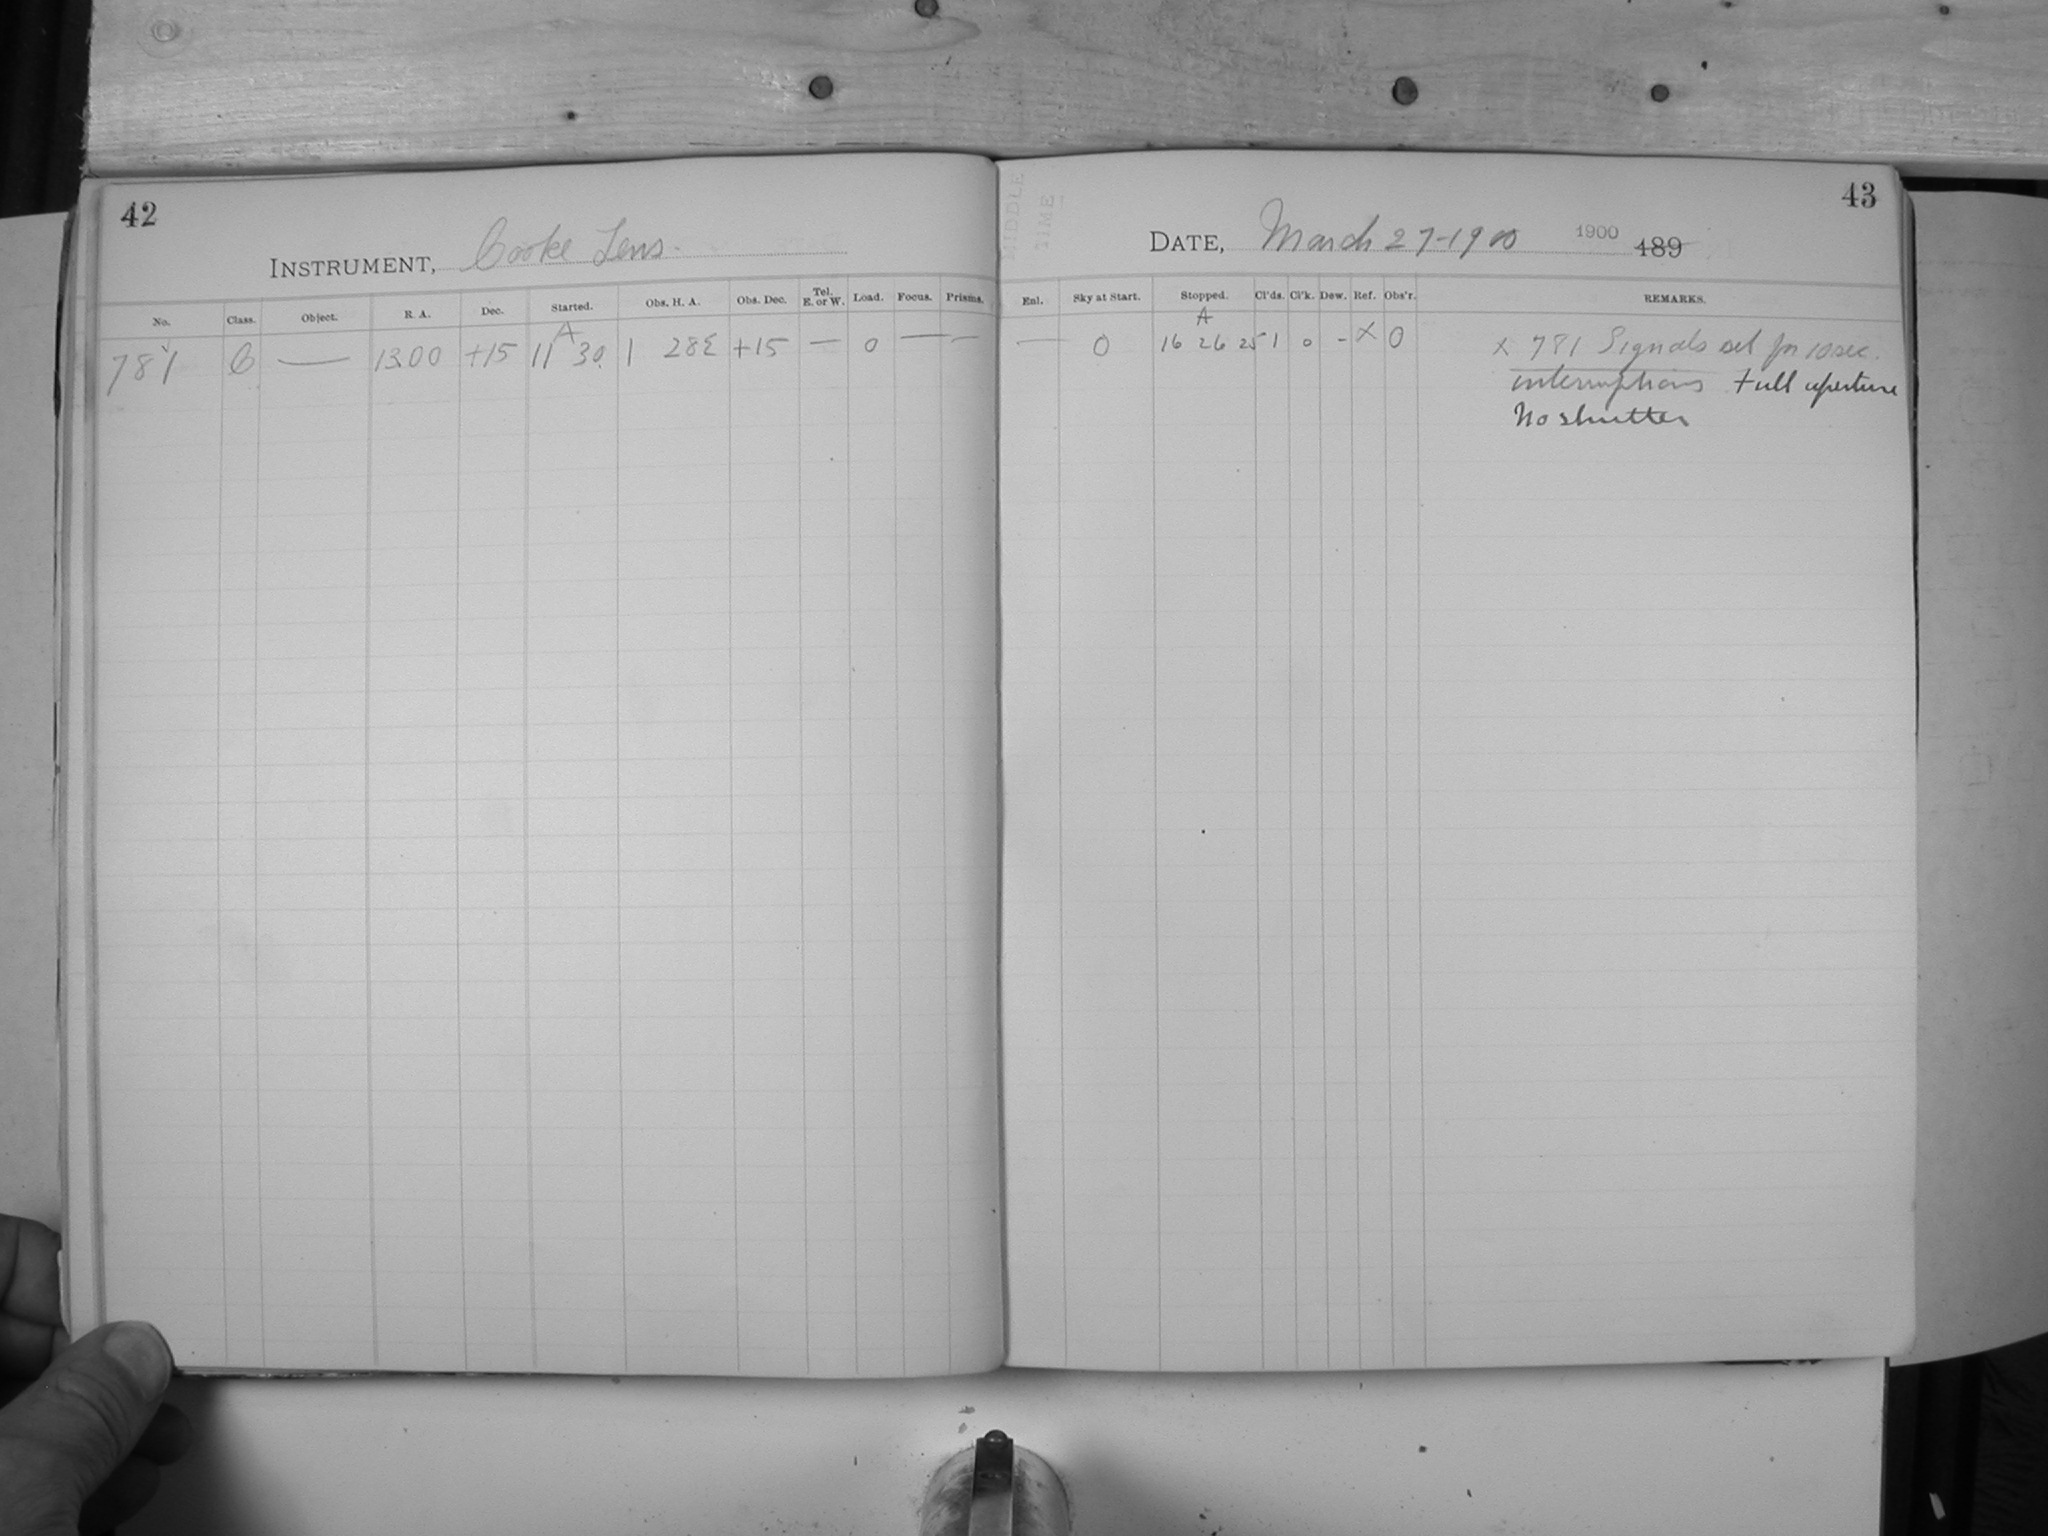 42
INSTRUMENT, Cooke Lens.
No. Class. Object. R. A. Dec. Started. Obs. H. A. Obs. Dec. Tel. E. or W. Load. Focus. Prisms.
A
781 C — 13.00 +15 11 30. 1 28E +15 — 0 — —
43
MIDDLE
TIME
DATE, March 27-1900 1900 189
Enl. Sky at Start. Stopped. Cl'ds. Cl'k. Dew. Ref. Obs'r. REMARKS.
A
— 0 16 26 25 1 0 - X O x 781 Signals set for 10 sec.
interruptions Full aperture
No shutter